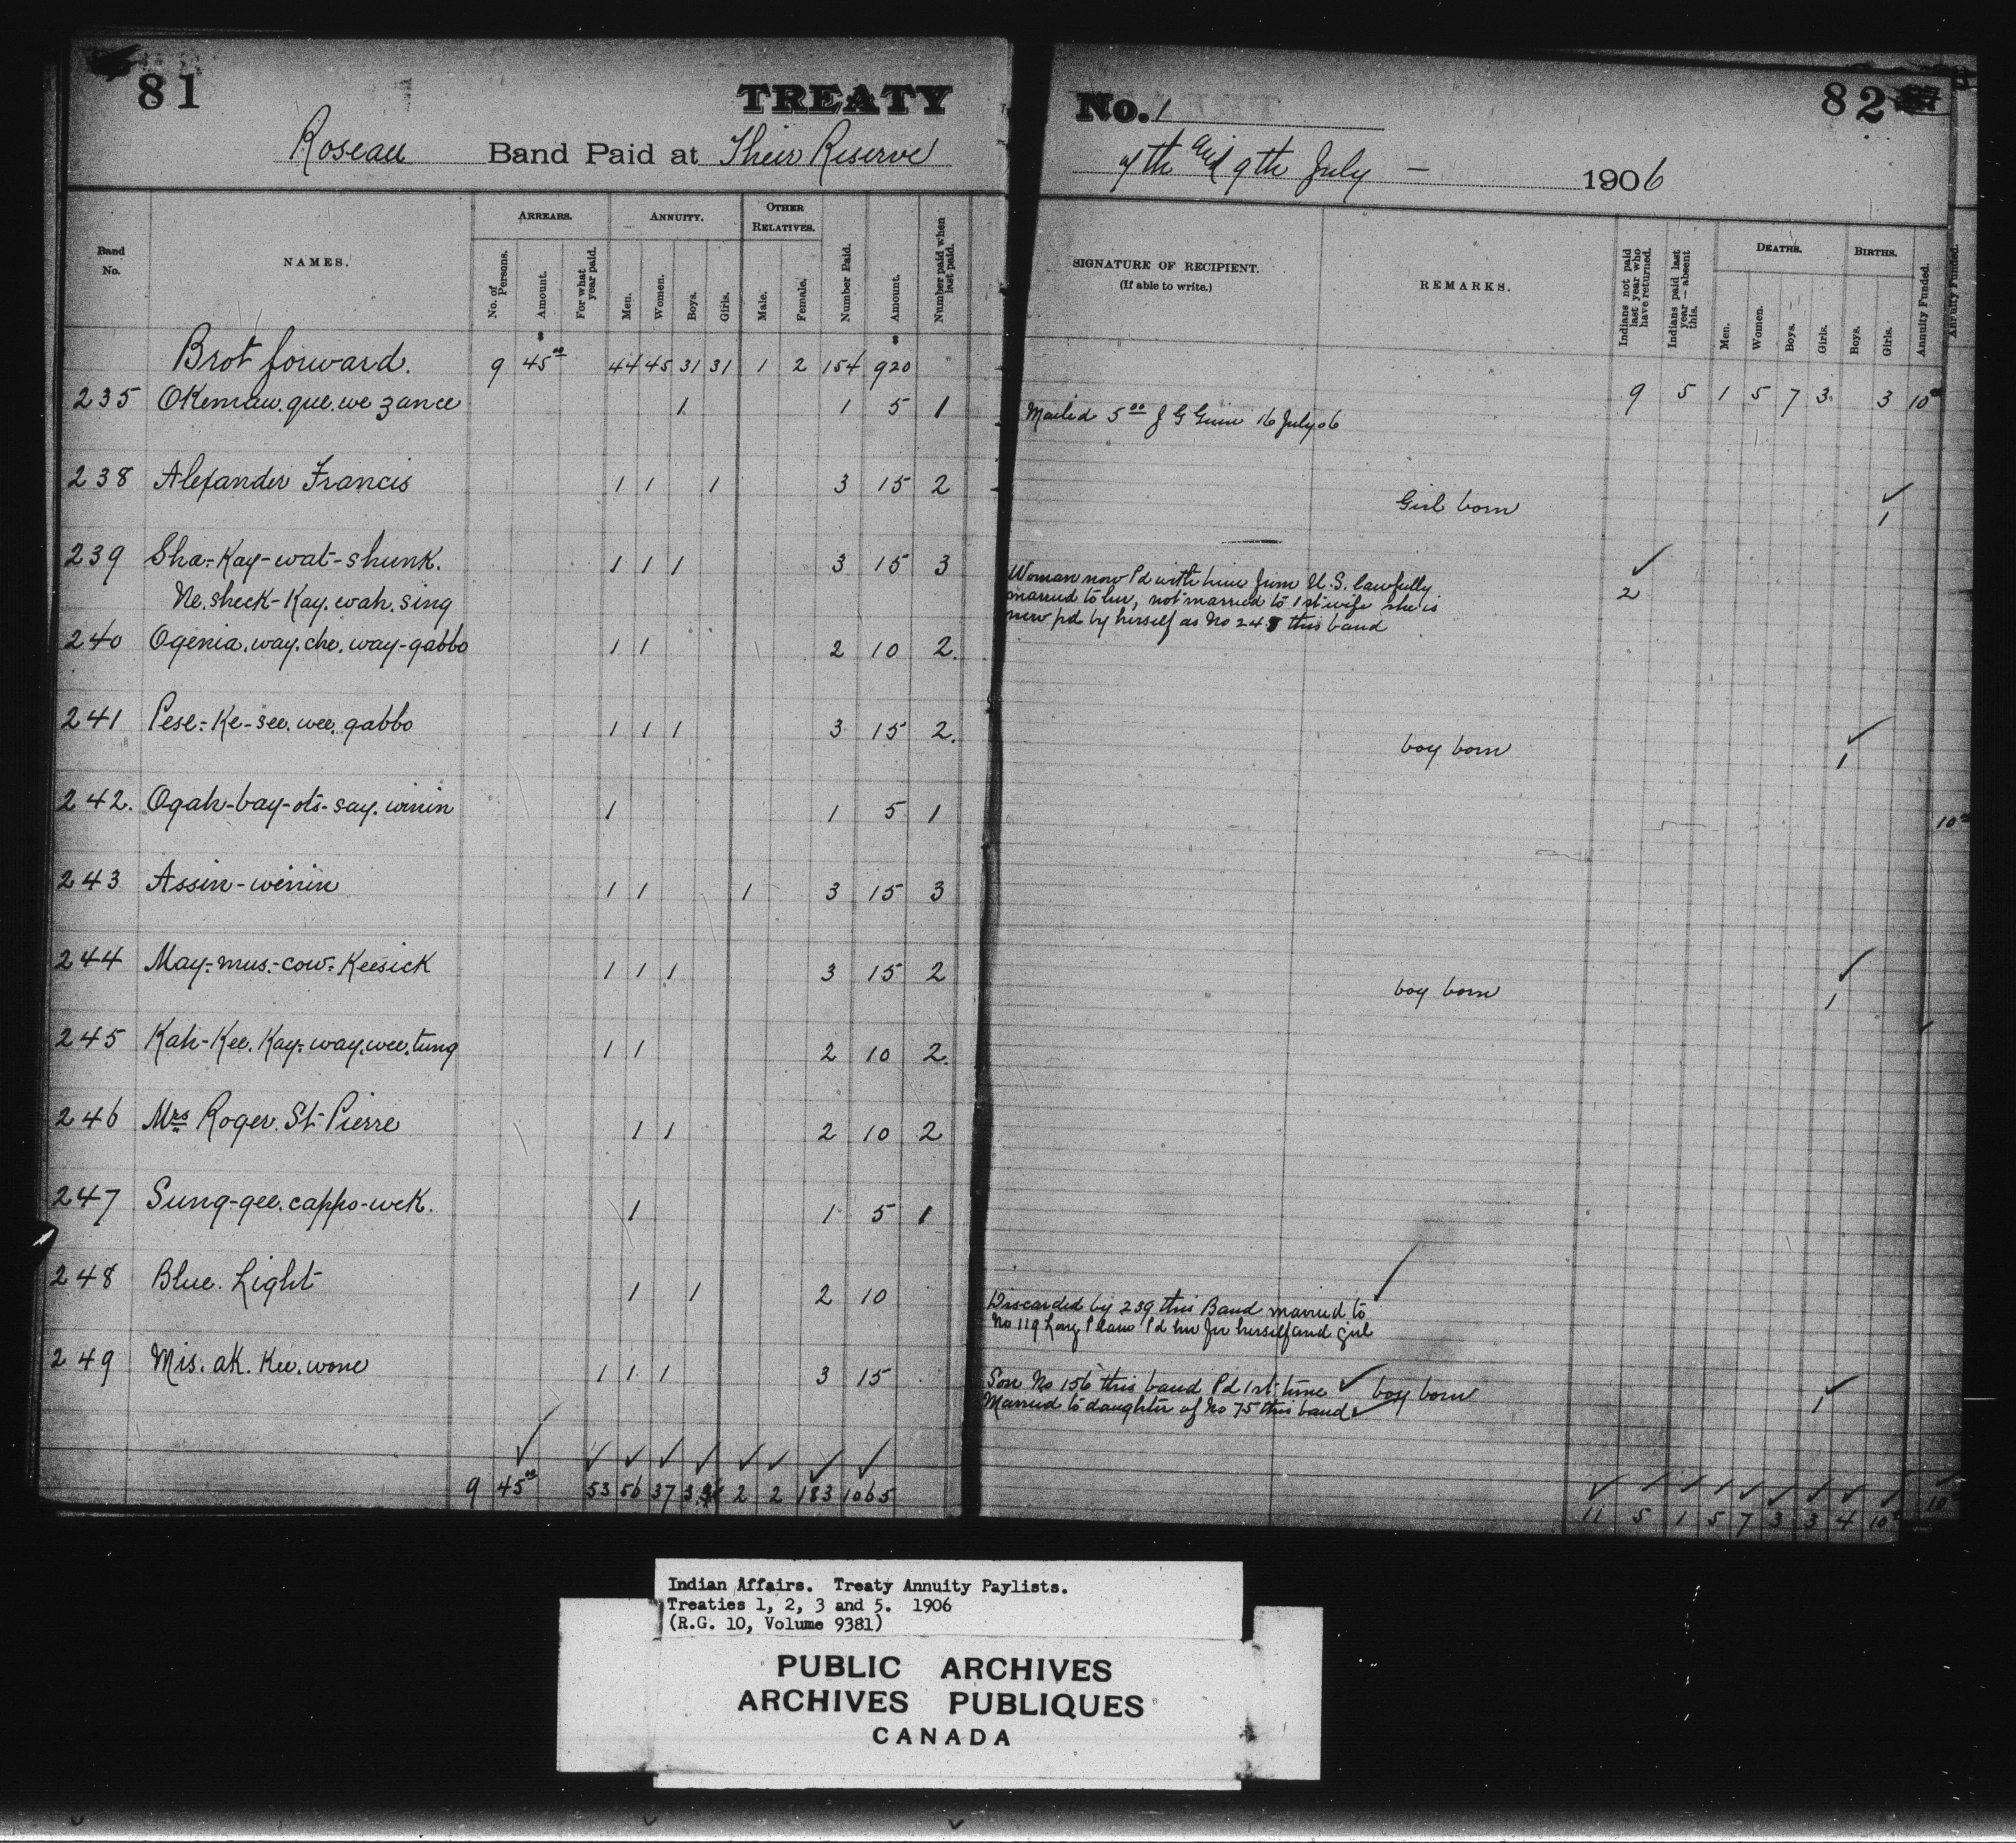 81 TREATY No. 1 82
Roseau Band Paid at Their Reserve 7th and 9th July — 1906
Band No. NAMES. ARREARS. No. of Persons. Amount. For what year paid. ANNUITY. Men. Women. Boys. Girls. OTHER RELATIVES. Male. Female. Number Paid. Amount. Number paid when last paid.
SIGNATURE OF RECIPIENT. (If able to write.) REMARKS. Indians not paid last year who have returned. Indians paid last year — absent this. DEATHS. Men. Women. Boys. Girls. BIRTHS. Boys. Girls. Annuity Funded.
Annuity Funded.
Brot forward. 9 45 00 44 45 31 31 1 2 154 920 9 5 1 5 7 3 3 10
235 OKemaw. que. we zance 1 1 5 1 Mailed 5 00 J G 16 July 06
238 Alexander Francis 1 1 1 3 15 2 Girl born ✓ 1
239 Sha-Kay-wat-shunk. 1 1 1 3 15 3 ✓ 2
Ne. sheck-Kay. wah. sing
Woman now Pd with him from U.S. lawfully
married to her, not married to 1st wife she is
now pd by herself as No 248 this band
240 Ogenia. way. che. way-gabbo 1 1 2 10 2.
241 Pese-Ke-see. wee. gabbo 1 1 1 3 15 2. boy born ✓ 1
242. Ogah-bay-ots-say. winin 1 1 5 1 10
243 Assin-winin 1 1 1 3 15 3
244 May-mus-cow-Keesick 1 1 1 3 15 2 boy born ✓ 1
245 Kah-Kee. Kay-way. wee. tung 1 1 2 10 2.
246 Mrs Roger. St-Pierre 1 1 2 10 2
247 Sung-gee. cappo-wek. 1 1 5 1
248 Blue. Light 1 1 2 10
Discarded by 239 this Band married to ✓
No 119 Long Plain Pd her for herself and girl
249 Mis. ak. Kee. wone 1 1 1 3 15
Son No 156 this band Pd 1st time ✓ boy born ✓ 1
Married to daughter of No 75 this band ✓
9 45 00 53 56 37 2 2 183 1065 11 5 1 5 7 3 3 4 10 10
Indian Affairs. Treaty Annuity Paylists.
Treaties 1, 2, 3 and 5. 1906
(R.G. 10, Volume 9381)
PUBLIC ARCHIVES
ARCHIVES PUBLIQUES
CANADA